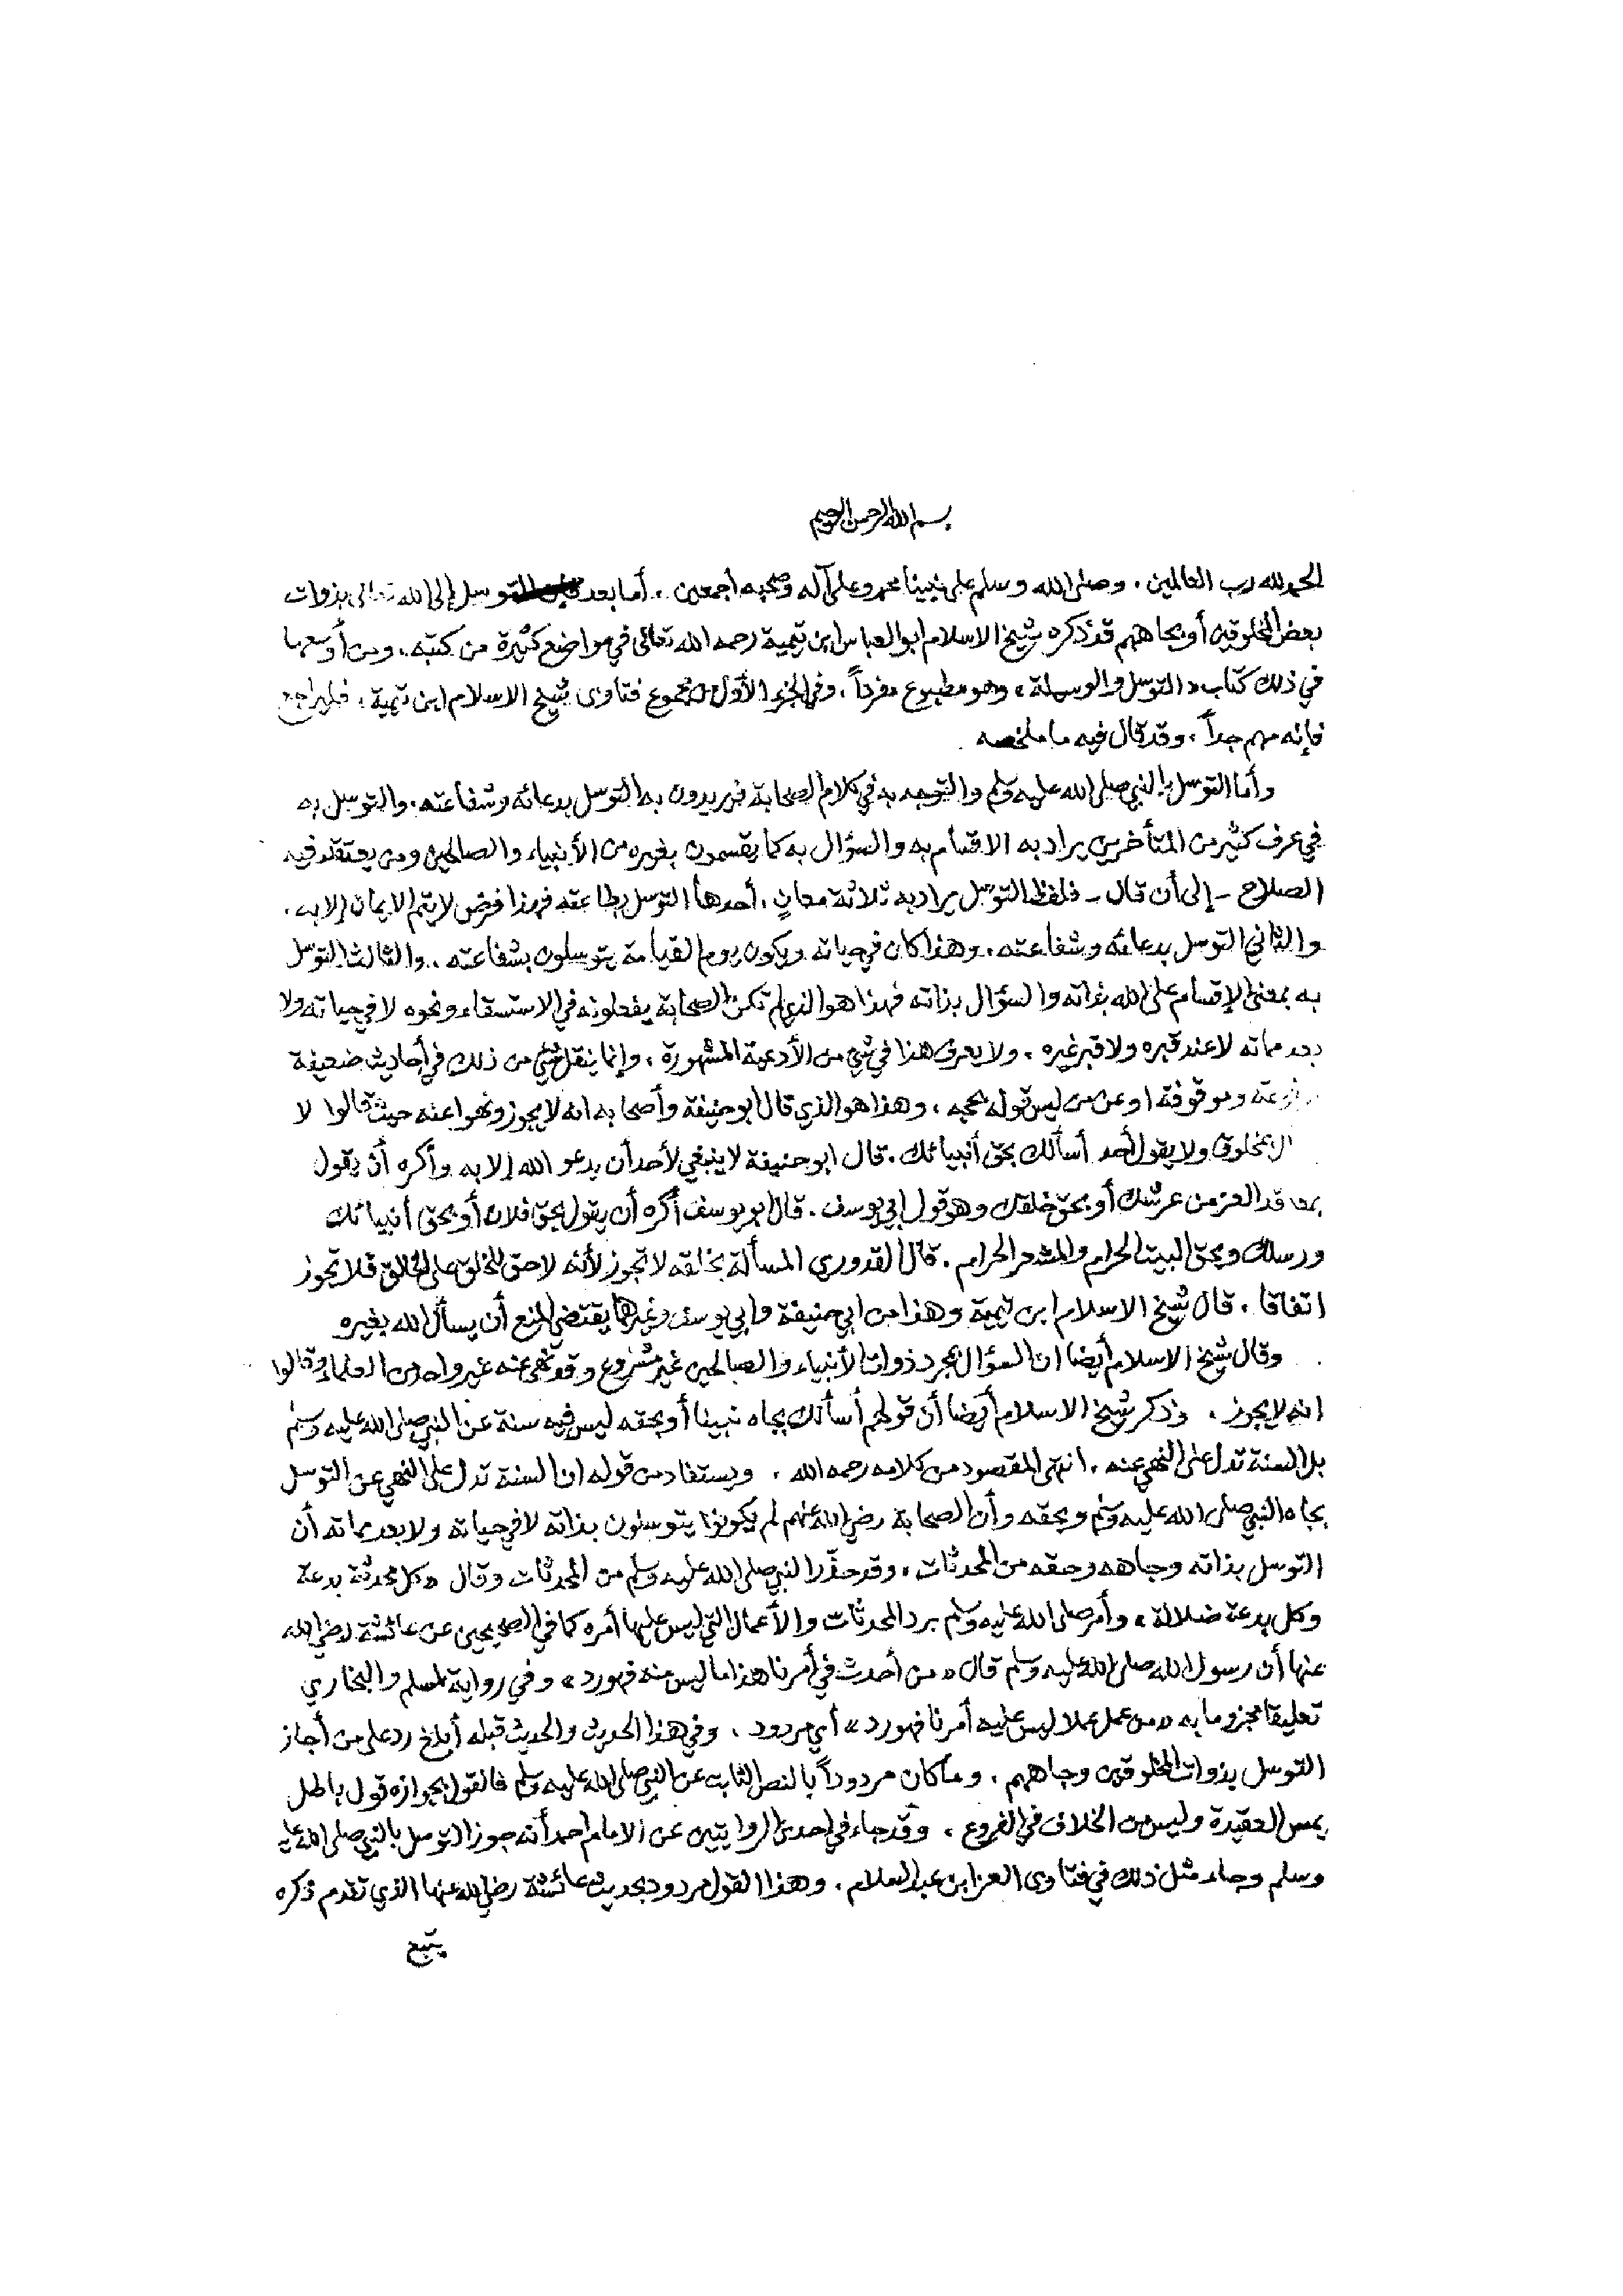 بسم الله الرحمن الرحيم
الحمد لله رب العالمين . وصلى الله وسلم على نبينا محمد وعلى آله وصحبه أجمعين . أما بعد فإن التوسل إلى الله تعالى بذوات
بعض المخلوقين أو بجاههم قد ذكره شيخ الاسلام ابو العباس ابن تيمية رحمه الله تعالى في مواضع كثيرة من كتبه . ومن أوسعها
في ذلك كتاب « التوسل والوسيلة » وهو مطبوع مفرداً . وفي الجزء الأول من مجموع فتاوى شيخ الاسلام ابن تيمية . فليراجع
فإنه مهم جداً . وقد قال فيه ما ملخصه .
وأما التوسل بالنبي صلى الله عليه وسلم والتوجه به في كلام الصحابة فيريدون به التوسل بدعائه وشفاعته . والتوسل به
في عرف كثير من المتأخرين يراد به الاقسام به والسؤال به كما يقسمون بغيره من الأنبياء والصالحين ومن يعتقد فيه
الصلاح – إلى أن قال – فلفظ التوسل يراد به ثلاثة معانٍ . أحدها التوسل بطاعته فهذا فرض لا يتم الايمان إلا به .
والثاني التوسل بدعائه وشفاعته . وهذا كان في حياته ويكون يوم القيامة يتوسلون بشفاعته . والثالث التوسل
به بمعنى الإقسام على الله بذاته والسؤال بذاته فهذا هو الذي لم تكن الصحابة يفعلونه في الاستسقاء ونحوه لا في حياته ولا
بعد مماته لا عند قبره ولا قبر غيره . ولا يعرف هذا في شيء من الأدعية المشهورة . وإنما ينقل شيء من ذلك في أحاديث ضعيفة
مرفوعة وموقوفة او عن من ليس قوله حجة . وهذا هو الذي قال ابو حنيفة وأصحابه انه لا يجوز ونهوا عنه حيث قالوا لا
بمخلوق ولا يقول أحد أسألك بحق أنبيائك . قال ابو حنيفة لا ينبغي لأحد أن يدعو الله إلا به وأكره أن يقول
بمعاقد العز من عرشك أو بحق خلقك وهو قول ابي يوسف . قال ابو يوسف أكره أن يقول بحق فلان أو بحق أنبيائك
ورسلك وبحق البيت الحرام والمشعر الحرام . قال القدوري المسألة بخلقه لا تجوز لأنه لا حق للخلق على الخالق فلا تجوز
اتفاقا . قال شيخ الاسلام ابن تيمية وهذا من ابي حنيفة وابي يوسف وغيرهما يقتضي المنع أن يسأل الله بغيره
. وقال شيخ الاسلام أيضا ان السؤال بمجرد ذوات الأنبياء والصالحين غير مشروع وقد نهى عنه غير واحد من العلماء وقالوا
انه لا يجوز . وذكر شيخ الاسلام أيضا أن قولهم أسألك بجاه نبينا أو بحقه ليس فيه سنة عن النبي صلى الله عليه وسلم
بل السنة تدل على النهي عنه . انتهى المقصود من كلامه رحمه الله . ويستفاد من قوله ان السنة تدل على النهي عن التوسل
بجاه النبي صلى الله عليه وسلم وبحقه وأن الصحابة رضي الله عنهم لم يكونوا يتوسلون بذاته لا في حياته ولا بعد مماته أن
التوسل بذاته وجاهه وحقه من المحدثات . وقد حذّر النبي صلى الله عليه وسلم من المحدثات وقال « كل محدثة بدعة
وكل بدعة ضلالة » وأمر صلى الله عليه وسلم برد المحدثات والأعمال التي ليس عليها أمره كما في الصحيحين عن عائشة رضي الله
عنها أن رسول الله صلى الله عليه وسلم قال « من أحدث في أمرنا هذا ما ليس منه فهو رد » وفي رواية لمسلم والبخاري
تعليقا مجزوما به « من عمل عملا ليس عليه أمرنا فهو رد » أي مردود . وفي هذا الحديث والحديث قبله أبلغ رد على من أجاز
التوسل بذوات المخلوقين وجاههم . وما كان مردوداً بالنص الثابت عن النبي صلى الله عليه وسلم فالقول بجوازه قول باطل
يمس العقيدة وليس من الخلاف في الفروع . وقد جاء في احدى الروايتين عن الامام احمد أنه جوز التوسل بالنبي صلى الله عليه
وسلم وجاء مثل ذلك في فتاوى العز ابن عبد السلام . وهذا القول مردود بحديث عائشة رضي الله عنها الذي تقدم ذكره
يتبع